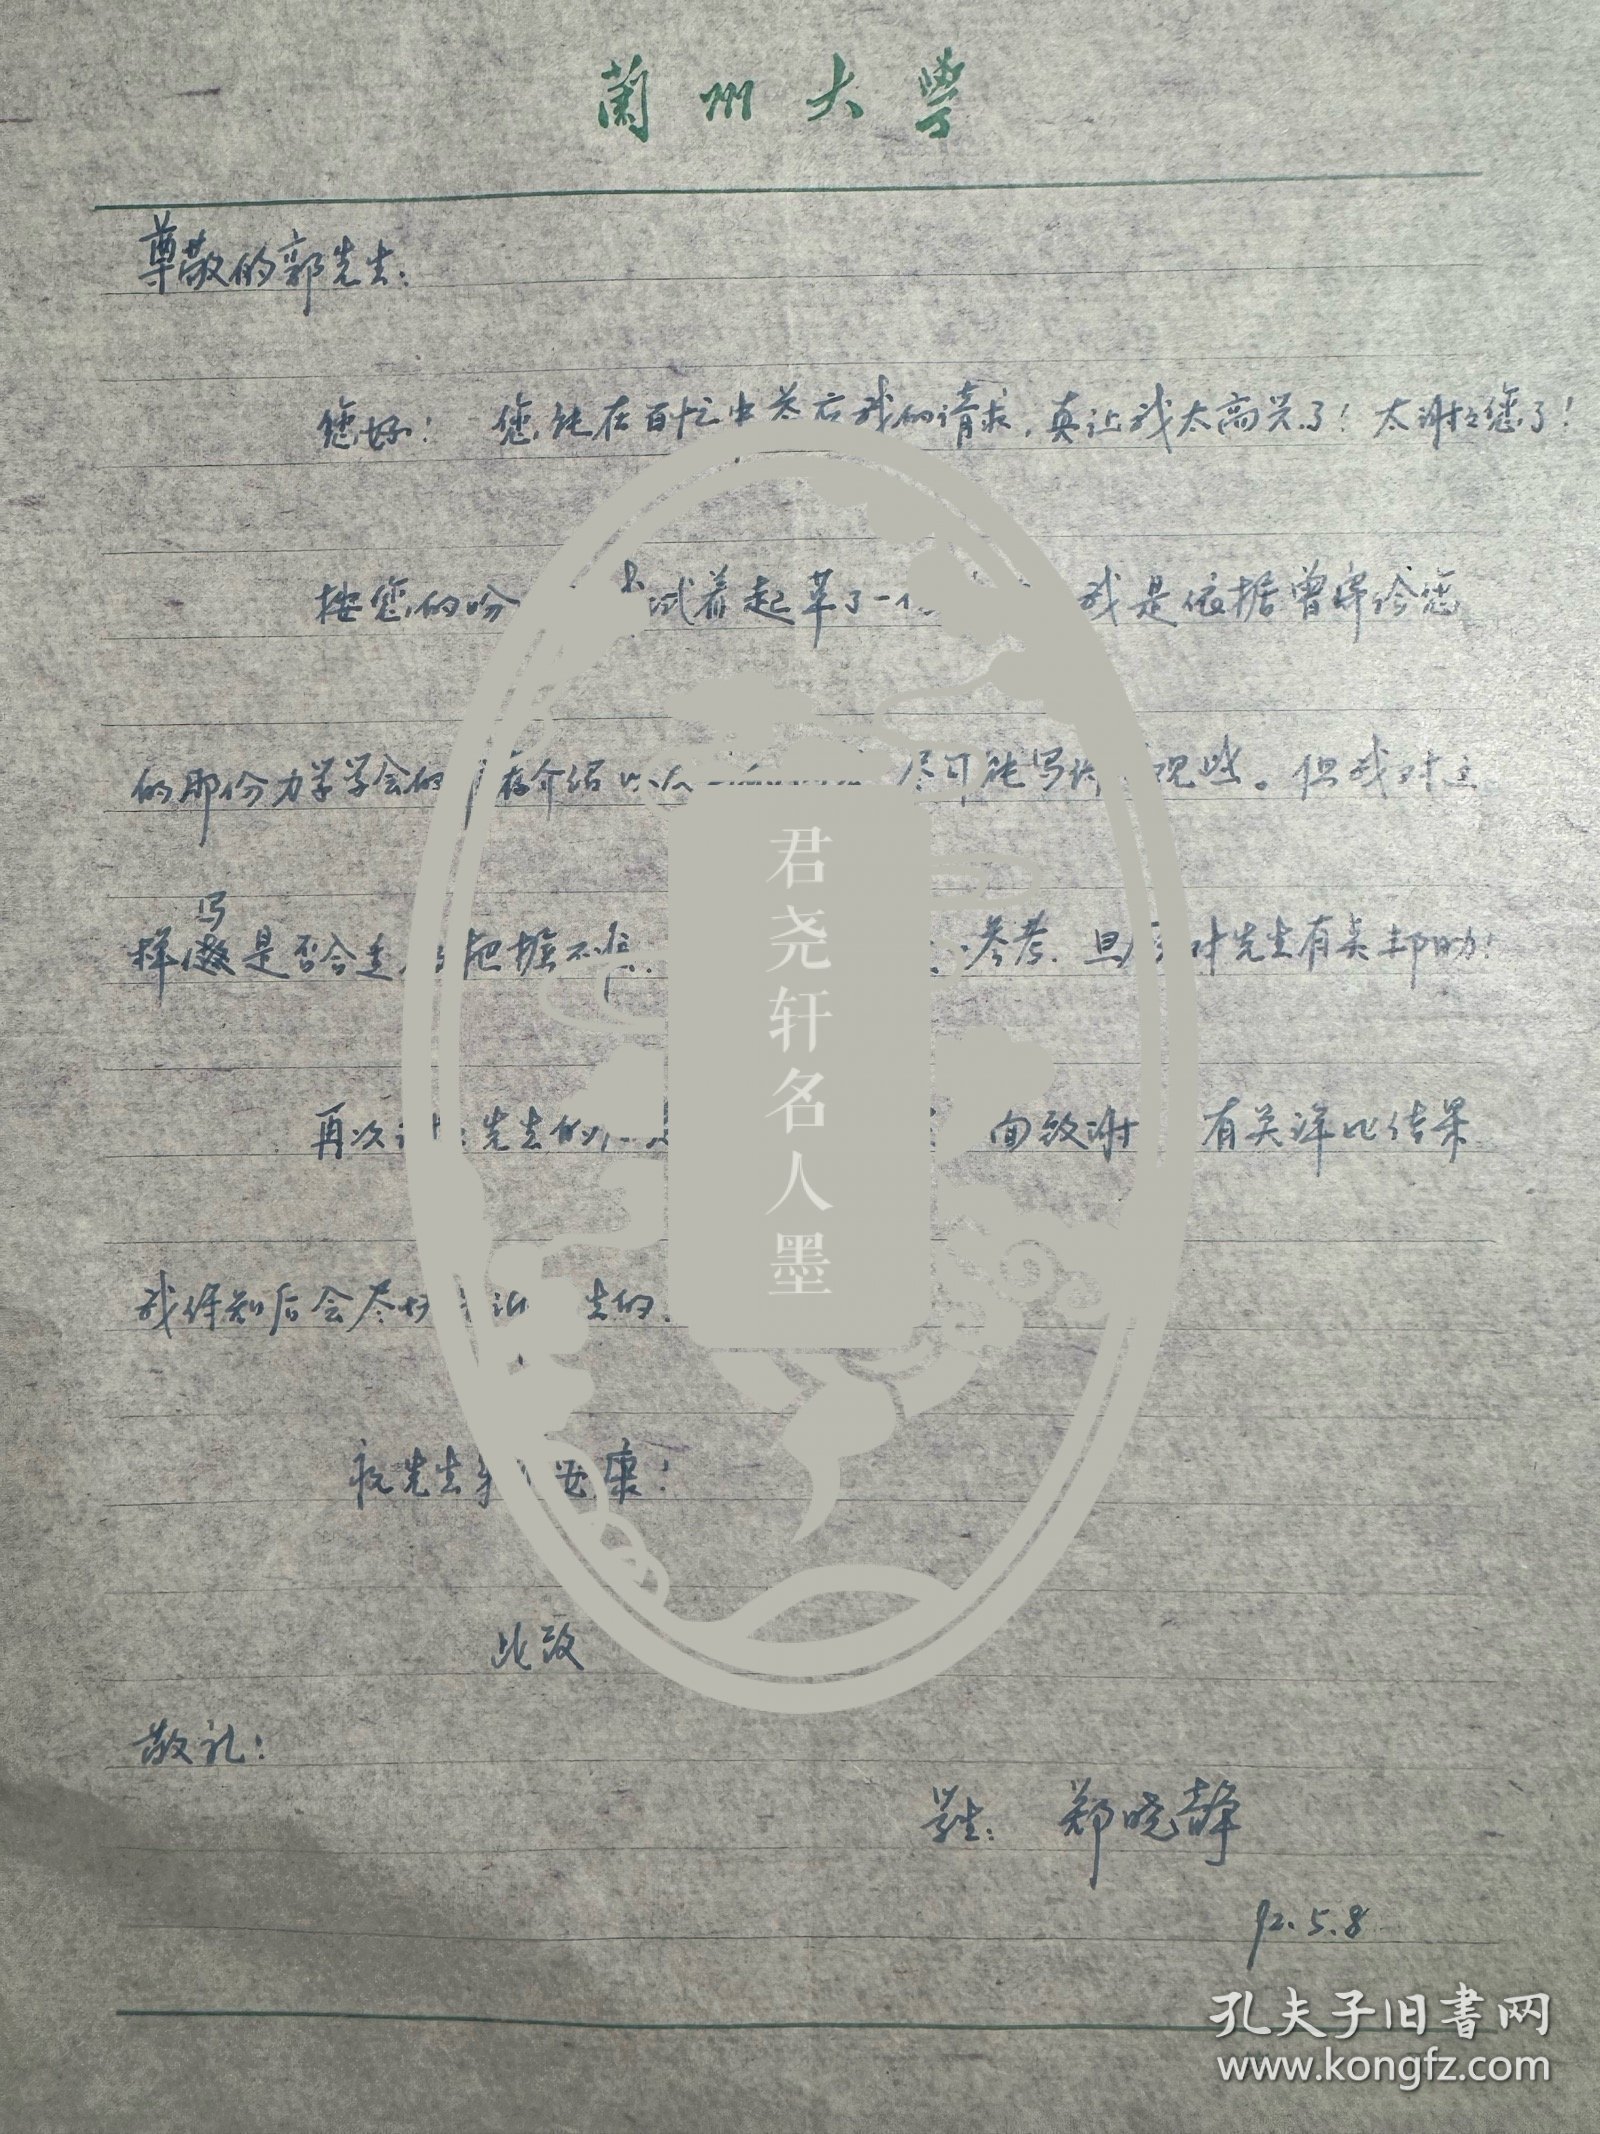 蘭州大學
尊敬的郭先生：
您好！ 您能在百忙中答应我的请求，真让我太高兴了！太谢谢您了！
按您的吩 试着起草了一 我是依据曾寄给您
的那份力学学会的 荐介绍以及 尽可能写 观些。但我对这
样写是否合适 把握不准， 参考，且 对先生有点帮助！
再次谢谢先生的 面致谢 有关评比结果
我得知后会尽快 先生的
祝先生 安康！
此致
敬礼！
学生： 郑晓静
92.5.8
君尧轩名人墨
孔夫子旧书网
www.kongfz.com